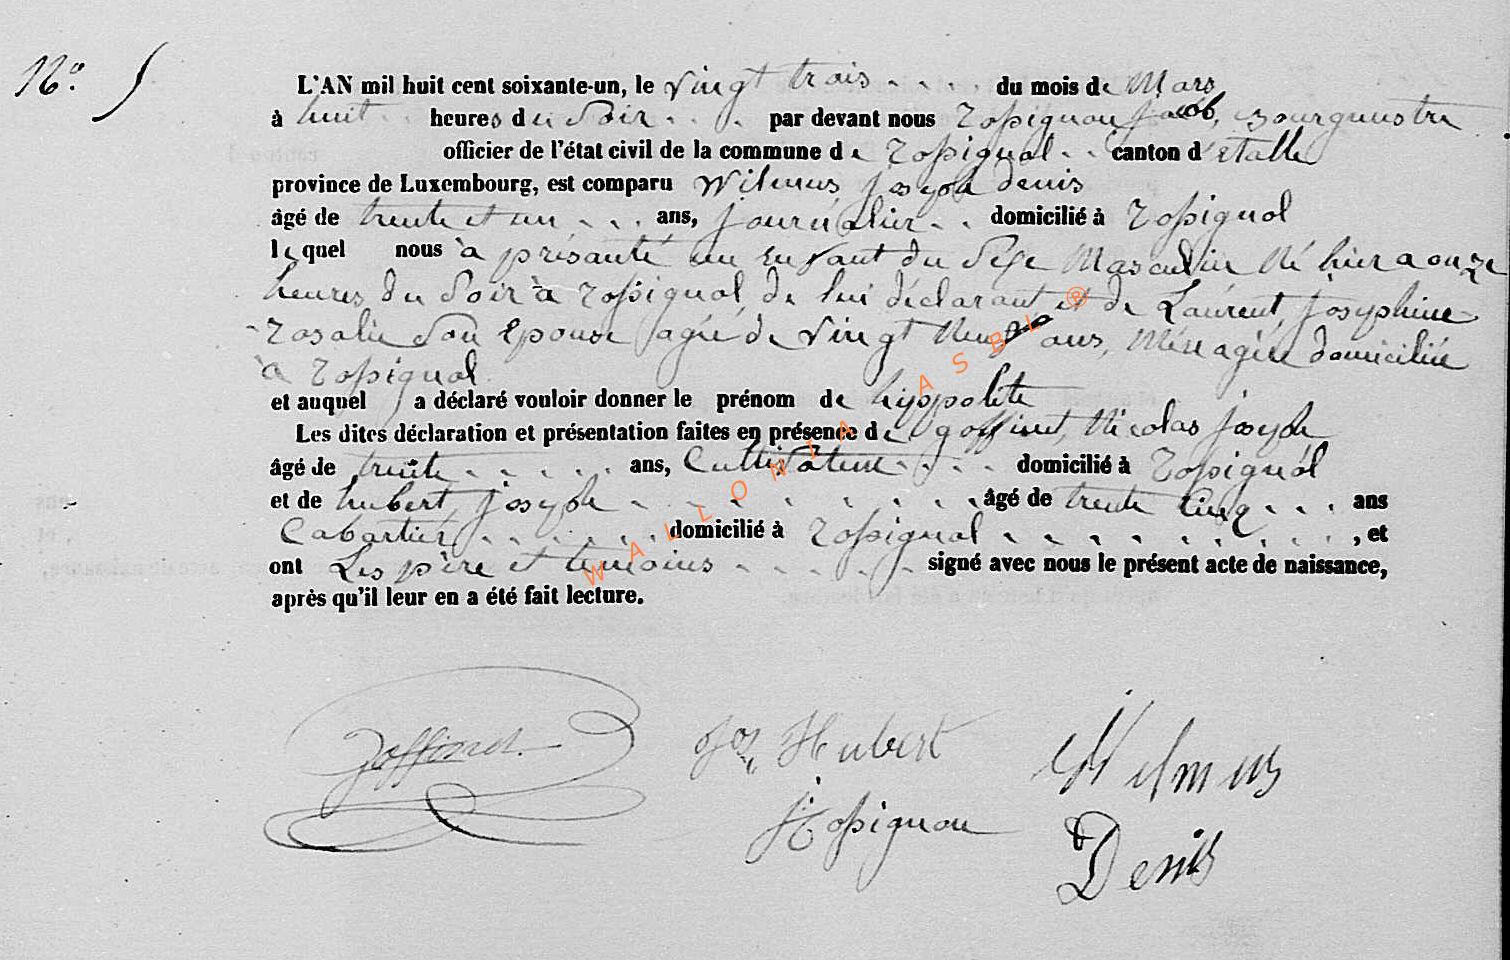 N.° 5
L'AN mil huit cent soixante-un, le vingt trois du mois de Mars
à huit heures du Soir par devant nous Rossignon jacob, Bourgmestre
officier de l'état civil de la commune de Rossignol canton d'Etalle
province de Luxembourg, est comparu Wilmus joseph denis
âgé de trente et un ans, journalier domicilié à Rossignol
lequel nous à présanté un Enfant du Sexe Masculin Né hier a onze
heures du Soir à Rossignol de lui déclarant et de Laurent, josephine
Rosalie Son Epouse agée de vingt Neuf ans, Ménagère domiciliée
à Rossignol
et auquel a déclaré vouloir donner le prénom de hippolite
Les dites déclaration et présentation faites en présence de goffinet, Nicolas joseph
âgé de trente ans, Cultivateur domicilié à Rossignol
et de hubert, joseph âgé de trente Cinq ans
Cabartier domicilié à Rossignol , et
ont Les père et temoins signé avec nous le présent acte de naissance,
après qu'il leur en a été fait lecture.
Goffinet Jos Hubert Wilmus
Rossignon Denis
WALLONIA ASBL ®